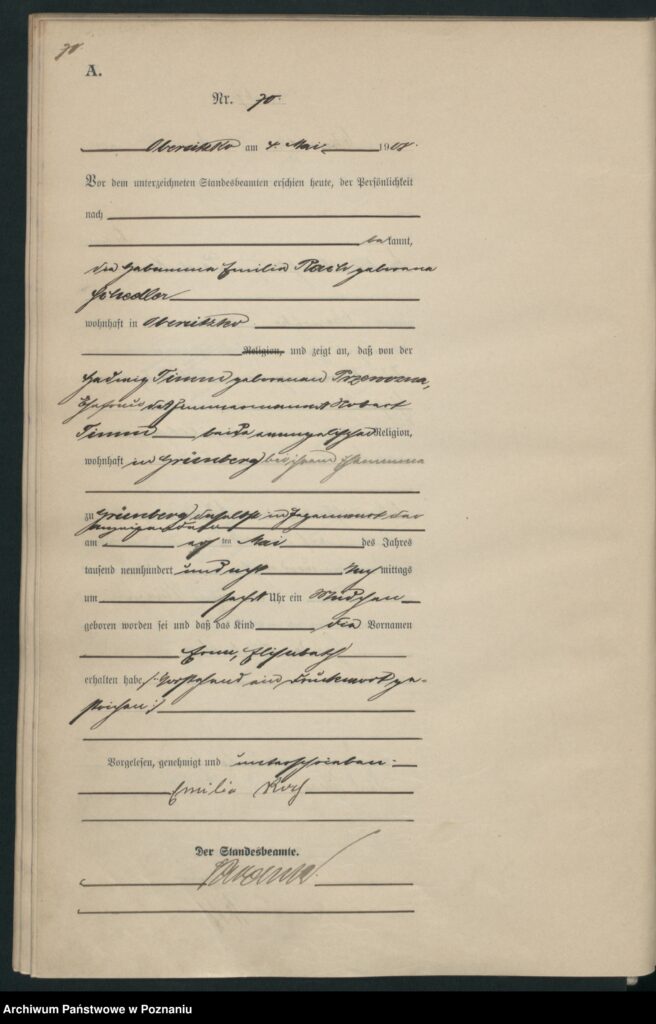 70
A.
Nr. 70
Obersitzko am 4. Mai 1908.
Vor dem unterzeichneten Standesbeamten erschien heute, der Persönlichkeit
nach
bekannt,
die Hebamme Emilie Koch geborene
Schedler
wohnhaft in Obersitzko
Religion, und zeigt an, daß von der
Hedwig Timm geborenen
Ehefrau des Zimmermanns Robert
Timm beide evangelischer Religion,
wohnhaft in Grünberg bei ihrem Ehemanne
zu Grünberg daselbst in Gegenwart der
am ten Mai des Jahres
tausend neunhundert und acht Nachmittags
um sechs Uhr ein Mädchen
geboren worden sei und daß das Kind die Vornamen
Erna, Elisabeth
erhalten habe /: Vorstehend ein Druckwort ge-
strichen :/
Vorgelesen, genehmigt und unterschrieben:
Emilie Koch
Der Standesbeamte.
Archiwum Państwowe w Poznaniu